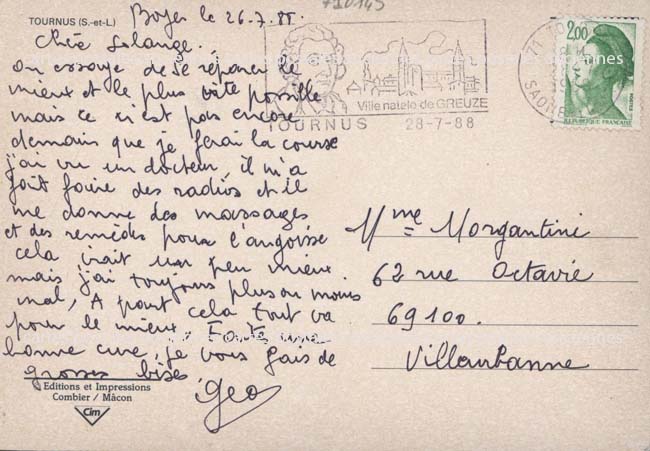 TOURNUS (S.-et-L.)
Boyer le 26.7.88.
Chère Solange.
On essaye de se réparer le
mieux et le plus vite possible
mais ce n'est pas encore
demain que je ferai la course
j'ai vu un docteur, il m'a
fait faire des radios et il
me donne des massages
et des remèdes pour l'angoisse
cela irait un peu mieux
mais j'ai toujours plus ou moins
mal, A part cela tout va
pour le mieux. Faites une
bonne cure, je vous fais de
grosses bises
Geo
Editions et Impressions
Combier / Mâcon
Cim
Ville natale de GREUZE
TOURNUS 28-7-88
71 TO
SAONE
2,00
POSTES
REPUBLIQUE FRANÇAISE
Mme Morgantini
62 rue Octavie
69100.
Villeurbanne